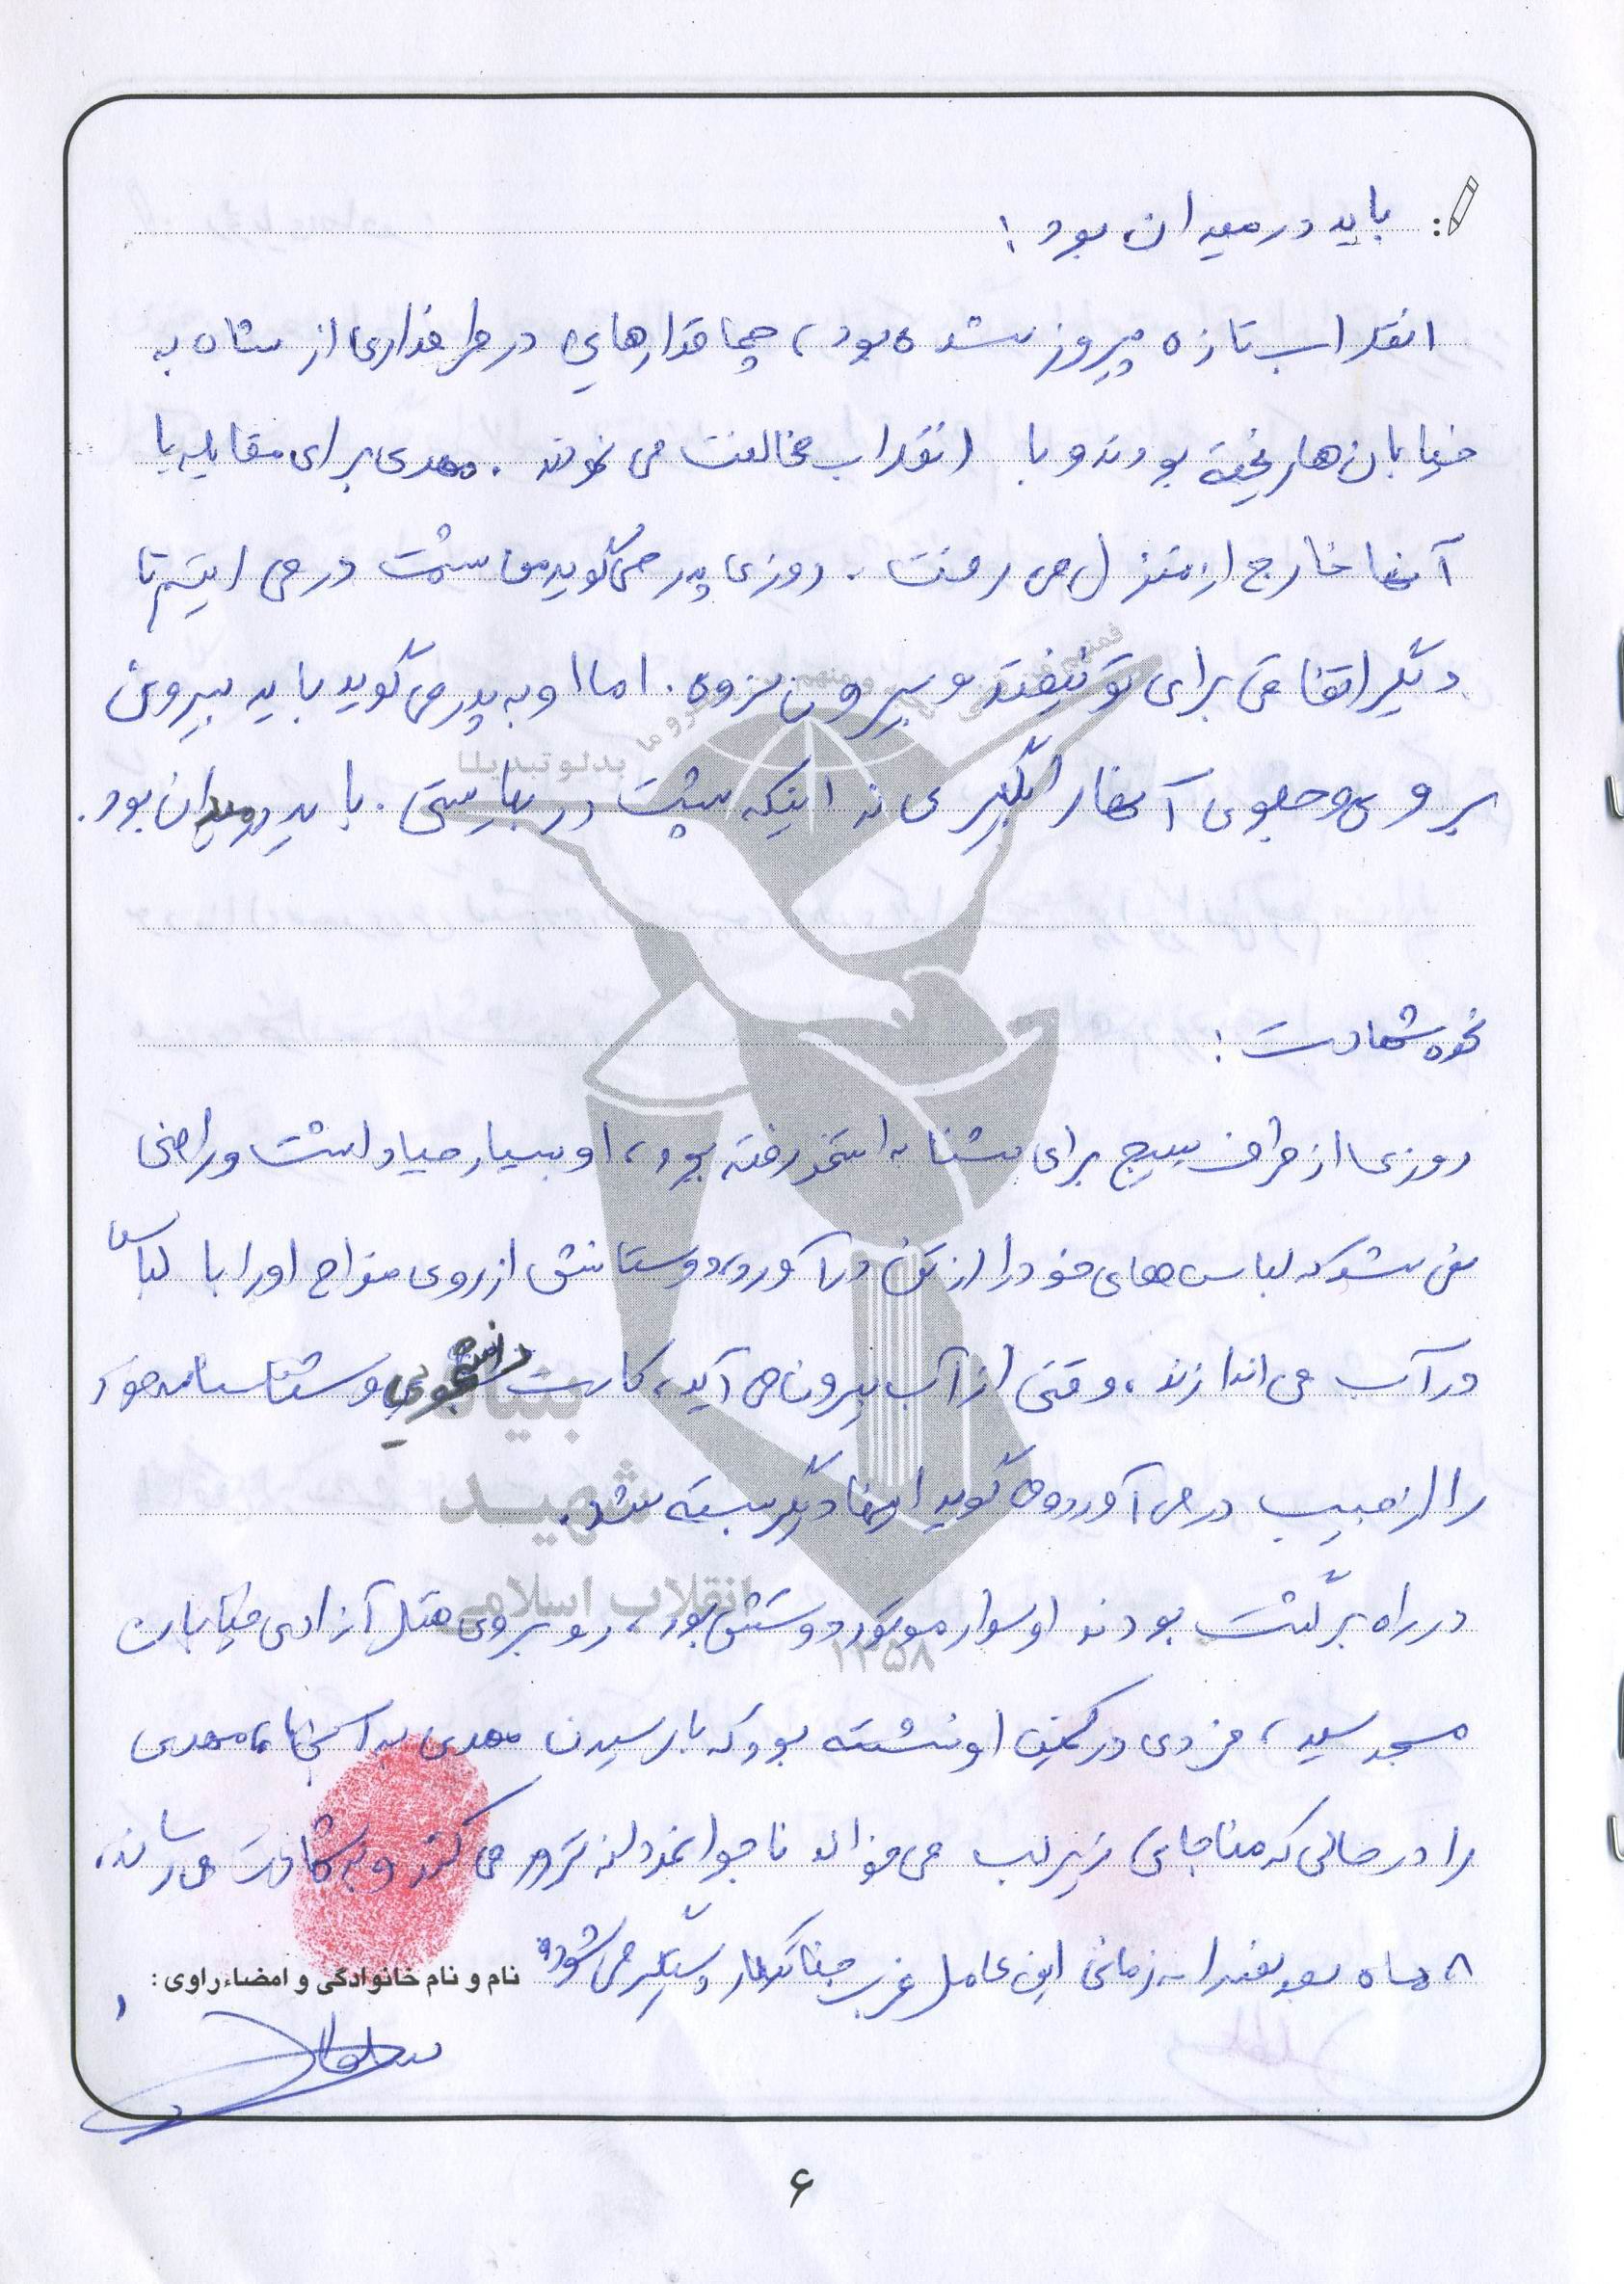 باید در میدان بود :
انقلاب تازه پیروز شده بود، چماقدارهایی در طرفداری از شاه به
خیابان ها ریخته بودند و با انقلاب مخالفت می نمودند . مهدی برای مقابله با
آنها خارج از منزل می رفت . روزی پدر می گوید من پشت در می ایستم تا
دیگر اتفاقی برای تو نیفتد و بیرون نروی . اما او به پدر می گوید باید بیرون
بروی و جلوی آنها را بگیری نه اینکه پشت در بایستی . باید در میدان بود .
نحوه شهادت :
روزی از طرف بسیج برای شنا به استخر رفته بود، او بسیار حیا داشت و راضی
نمی شد که لباس های خود را از تن درآورد، دوستانش از روی مزاح او را با لباس
در آب می اندازند، وقتی از آب بیرون می آید، کارت دانشجویی و شناسنامه خود
را از جیب در می آورد و می گوید اینها دیگر شسته شد.
در راه برگشت بودند او سوار موتور دوستش بود، روبروی هتل آزادی خیابان
مسجد سید، فردی در کمین او نشسته بود که با رسیدن مهدی به آنجا، مهدی
را در حالی که مناجاتی زیر لب می خواند ناجوانمردانه ترور می کند و به شهادت می رساند،
۸ ماه بعد زمانی این عامل غرب جنایتکار دستگیر می شود.
نام و نام خانوادگی و امضاء راوی :
بدلو تبدیلا
بنیاد
شهید
انقلاب اسلامی
۱۳۵۸
۶